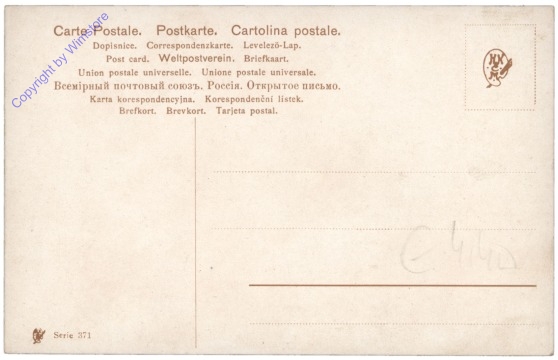 Carte Postale. Postkarte. Cartolina postale.
Dopisnice. Correspondenzkarte. Levelező-Lap.
Post card. Weltpostverein. Briefkaart.
Union postale universelle. Unione postale universale.
Всемірный почтовый союзъ. Россія. Открытое письмо.
Karta korespondencyjna. Korespondenční lístek.
Brefkort. Brevkort. Tarjeta postal.
Copyright by Winstore
Serie 371